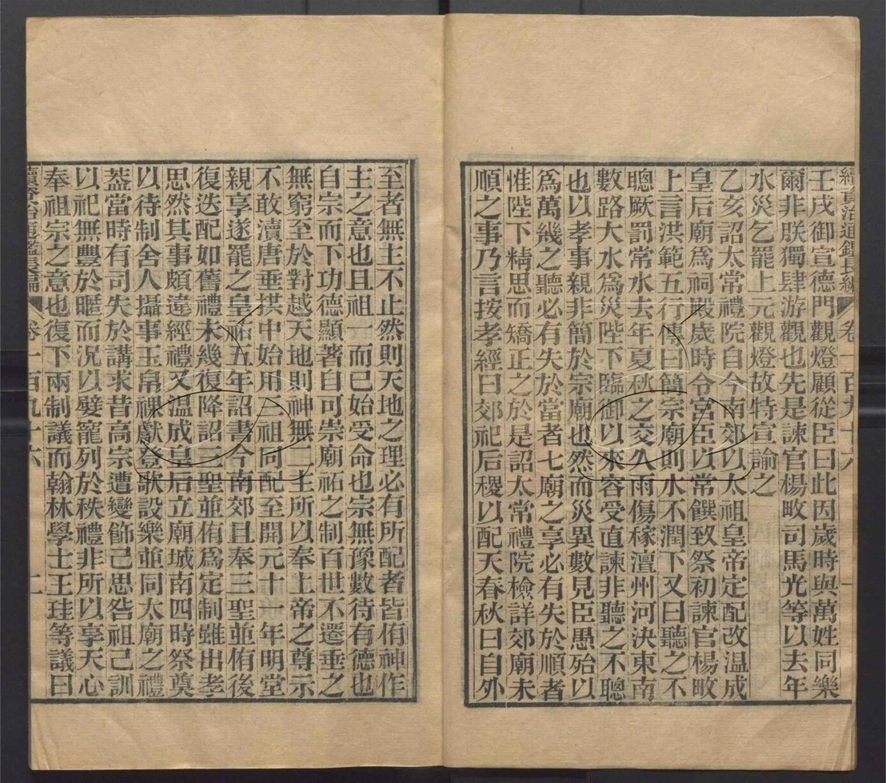 壬戌御宣德門觀燈顧從臣曰此因歲時與萬姓同樂
爾非朕獨肆游觀也先是諫官楊畋司馬光等以去年
水災乞罷上元觀燈故特宣諭之
乙亥詔太常禮院自今南郊以太祖皇帝定配改温成
皇后廟爲祠殿歲時令宮臣以常饌致祭初諫官楊畋
上言洪範五行傳曰簡宗廟則水不潤下又曰聽之不
聰厥罰常水去年夏秋之交久雨傷稼澶州河決東南
數路大水爲災陛下臨御以來容受直諫非聽之不聰
也以孝事親非簡於宗廟也然而災異數見臣愚殆以
爲萬幾之聽必有失於當者七廟之享必有失於順者
惟陛下精思而矯正之於是詔太常禮院檢詳郊廟未
順之事乃言按孝經曰郊祀后稷以配天春秋曰自外
續資治通鑑長編 卷一百九十六 一
至者無主不止然則天地之理必有所配者皆侑神作
主之意也且祖一而已始受命也宗無豫數待有德也
自宗而下功德顯著自可崇廟祐之制百世不遷垂之
無窮至於對越天地則神無二主所以奉上帝之尊示
不敢瀆唐垂拱中始用三祖同配至開元十一年明堂
親享遂罷之皇祐五年詔書今南郊且奉三聖並侑後
復迭配如舊禮未幾復降詔三聖並侑爲定制雖出孝
思然其事頗違經禮又温成皇后立廟城南四時祭奠
以待制舍人攝事玉帛祼獻登歌設樂並同太廟之禮
蓋當時有司失於講求昔高宗遭變飭己思咎祖己訓
以祀無豐於暱而況以嬖寵列於秩禮非所以享天心
奉祖宗之意也復下兩制議而翰林學士王珪等議曰
續資治通鑑長編 卷一百九十六 二